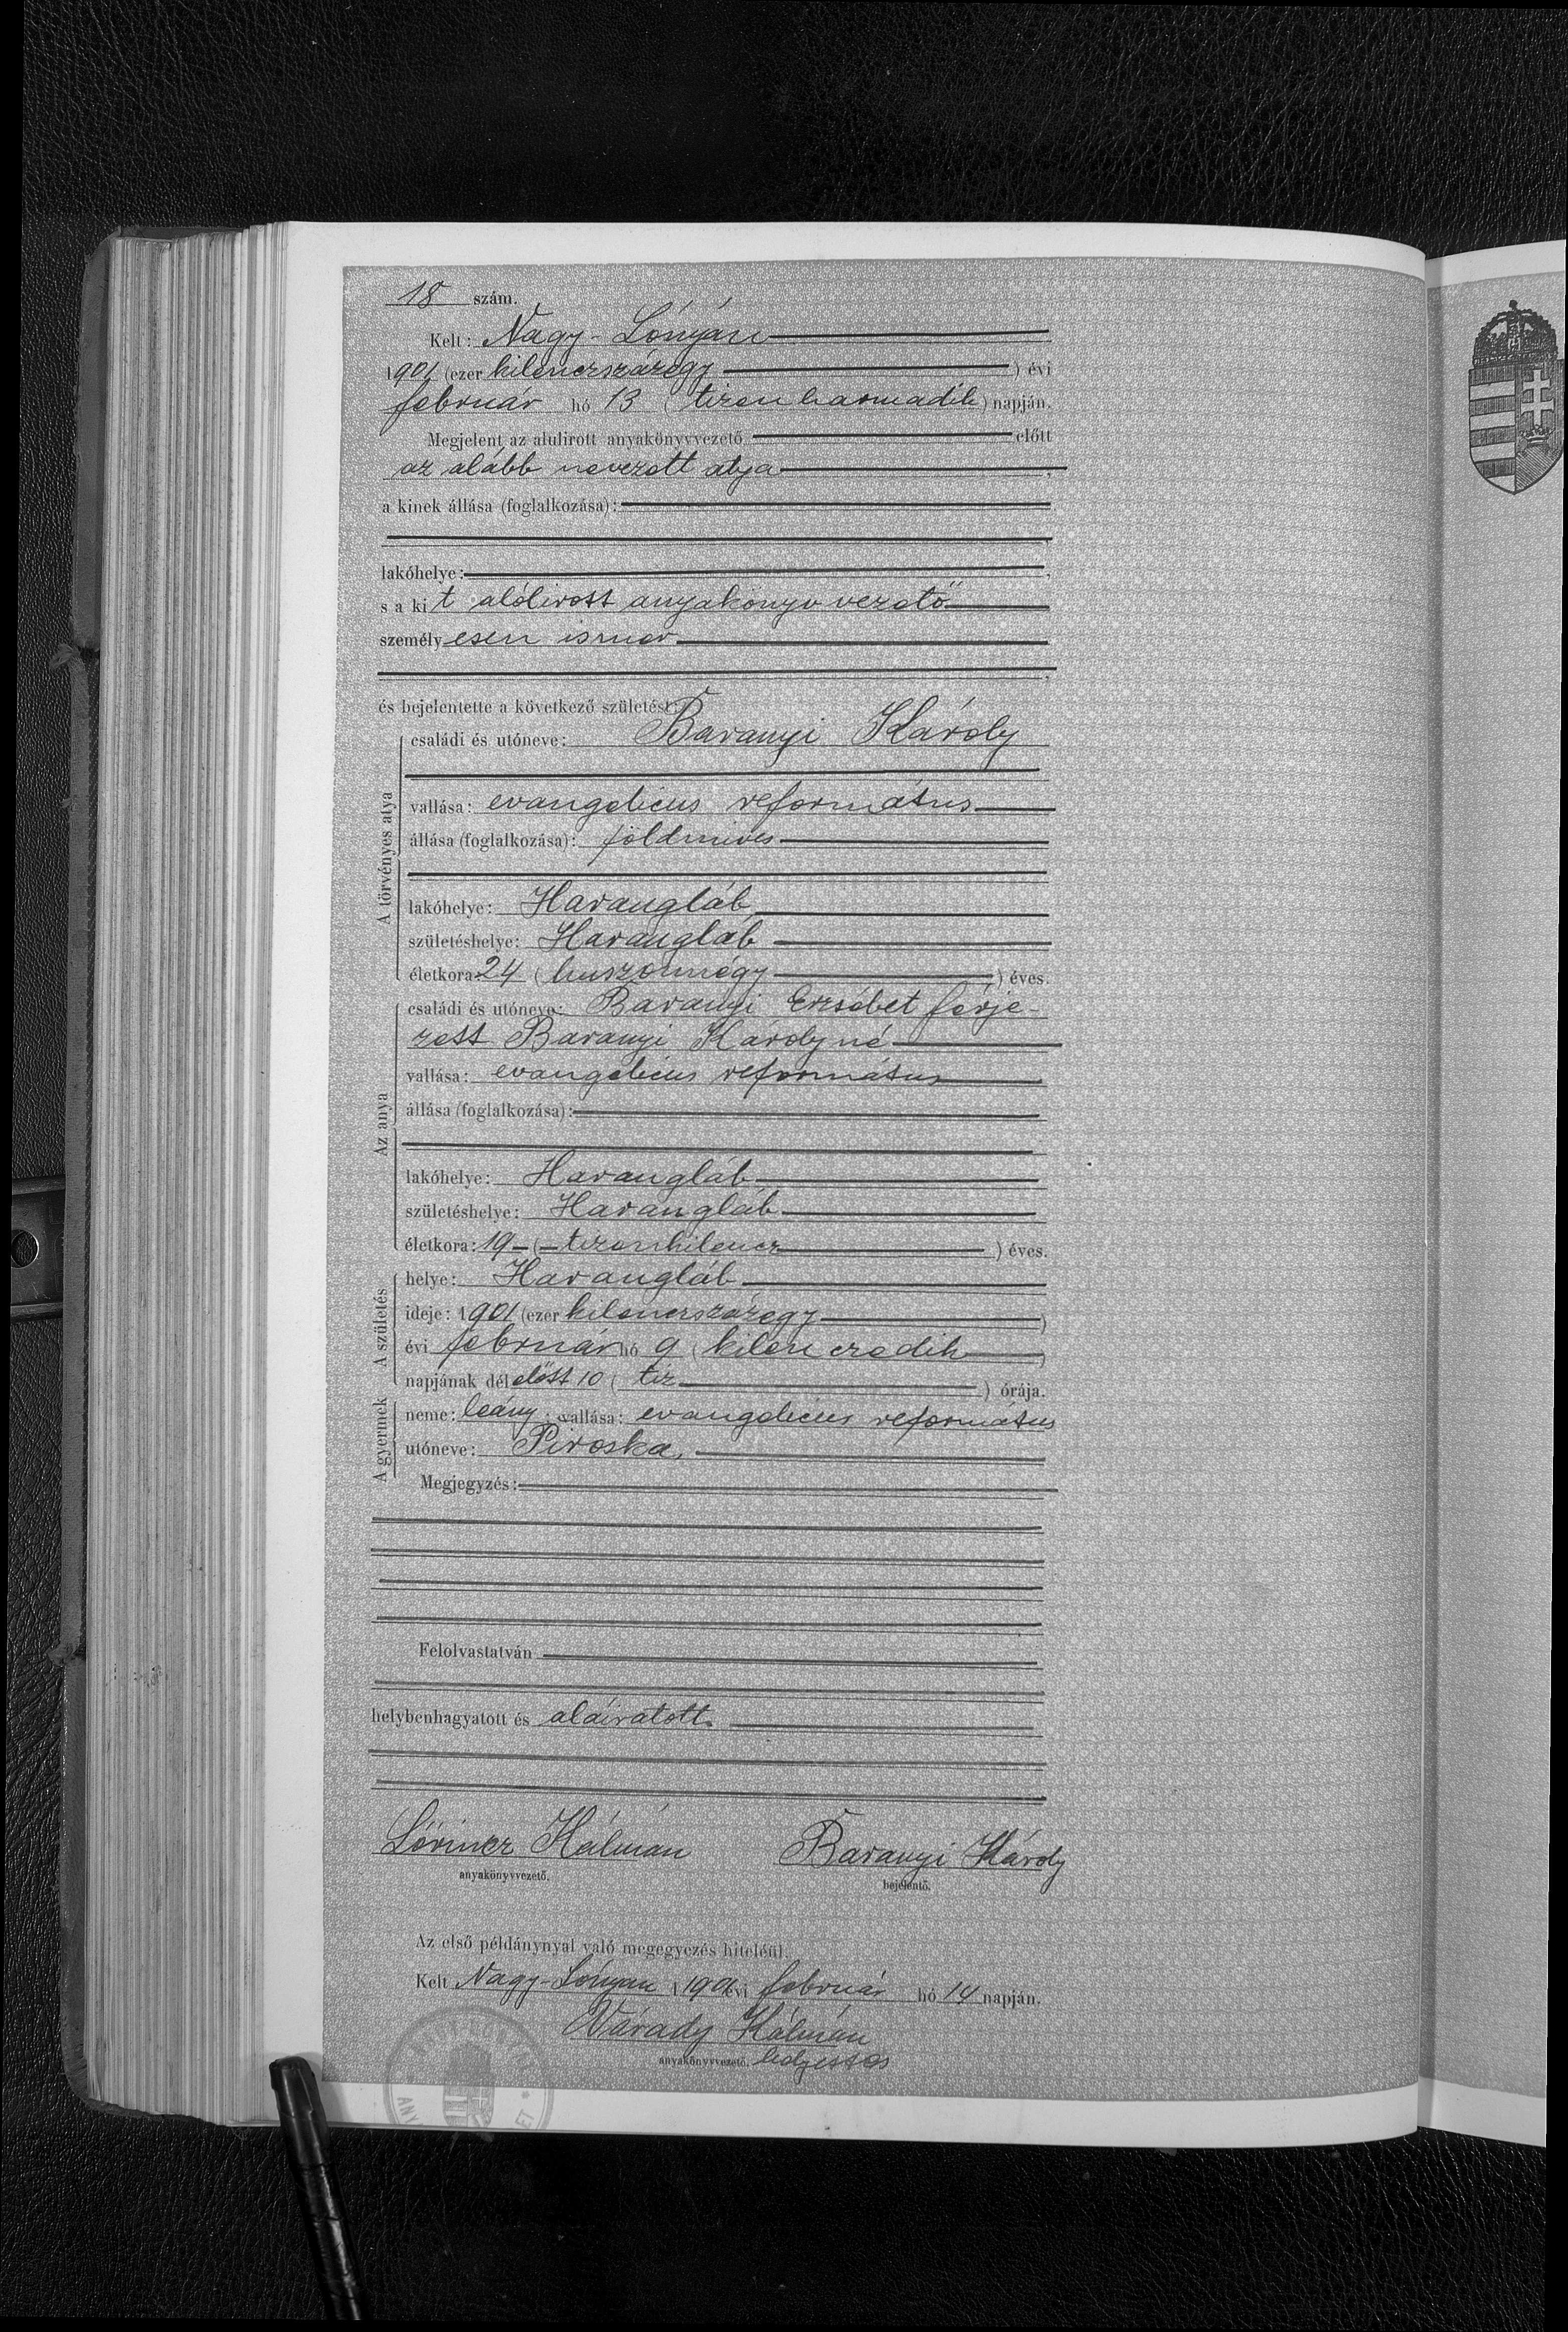 18 szám.
Kelt: Nagy-Lónyán
1901 (ezer kilenczszázegy) évi
február hó 13 (tizenharmadik) napján.
Megjelent az alulirott anyakönyvvezető előtt
az alább nevezett atya,
a kinek állása (foglalkozása):
lakóhelye:
s a kit alólirott anyakönyvvezető
személyesen ismer
és bejelentette a következő születést:
A törvényes atya
családi és utóneve: Baranyi Károly
vallása: evangelicus református
állása (foglalkozása): földmives
lakóhelye: Harangláb
születéshelye: Harangláb
életkora: 24 (huszonnégy) éves.
Az anya
családi és utóneve: Baranyi Erzsébet férje-
zett Baranyi Károlyné
vallása: evangelicus református
állása (foglalkozása):
lakóhelye: Harangláb
születéshelye: Harangláb
életkora: 19 (tizenkilencz) éves.
A születés
helye: Harangláb
ideje: 1901 (ezer kilenczszázegy)
évi február hó 9 (kilenczedik)
napjának délelőtt 10 (tiz) órája.
A gyermek
neme: leány; vallása: evangelicus református
utóneve: Piroska,
Megjegyzés:
Felolvastatván
helybenhagyatott és aláiratott.
Lőrincz Kálmán Baranyi Károly
anyakönyvvezető. bejelentő.
Az első példánynyal való megegyezés hiteléül.
Kelt Nagy-Lónyán 1901 évi február hó 14 napján.
Várady Kálmán
anyakönyvvezető. helyettes